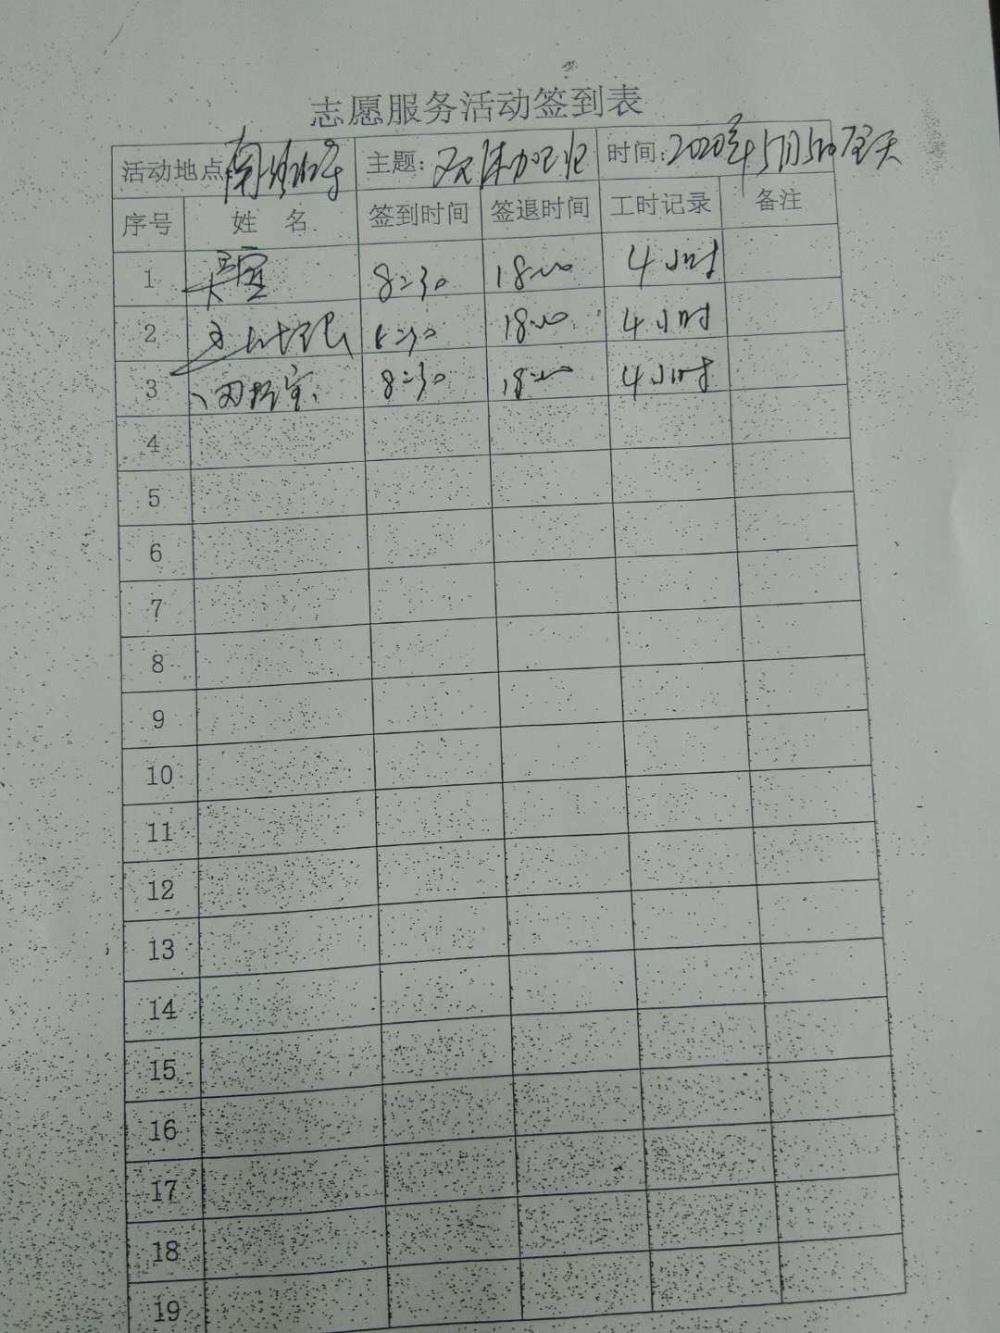 志愿服务活动签到表
活动地点 主题: 时间: 2020年5月5日全天
序号 姓 名 签到时间 签退时间 工时记录 备注
1 8:30 18:00 4小时
2 8:30 18:00 4小时
3 8:30 18:00 4小时
4
5
6
7
8
9
10
11
12
13
14
15
16
17
18
19